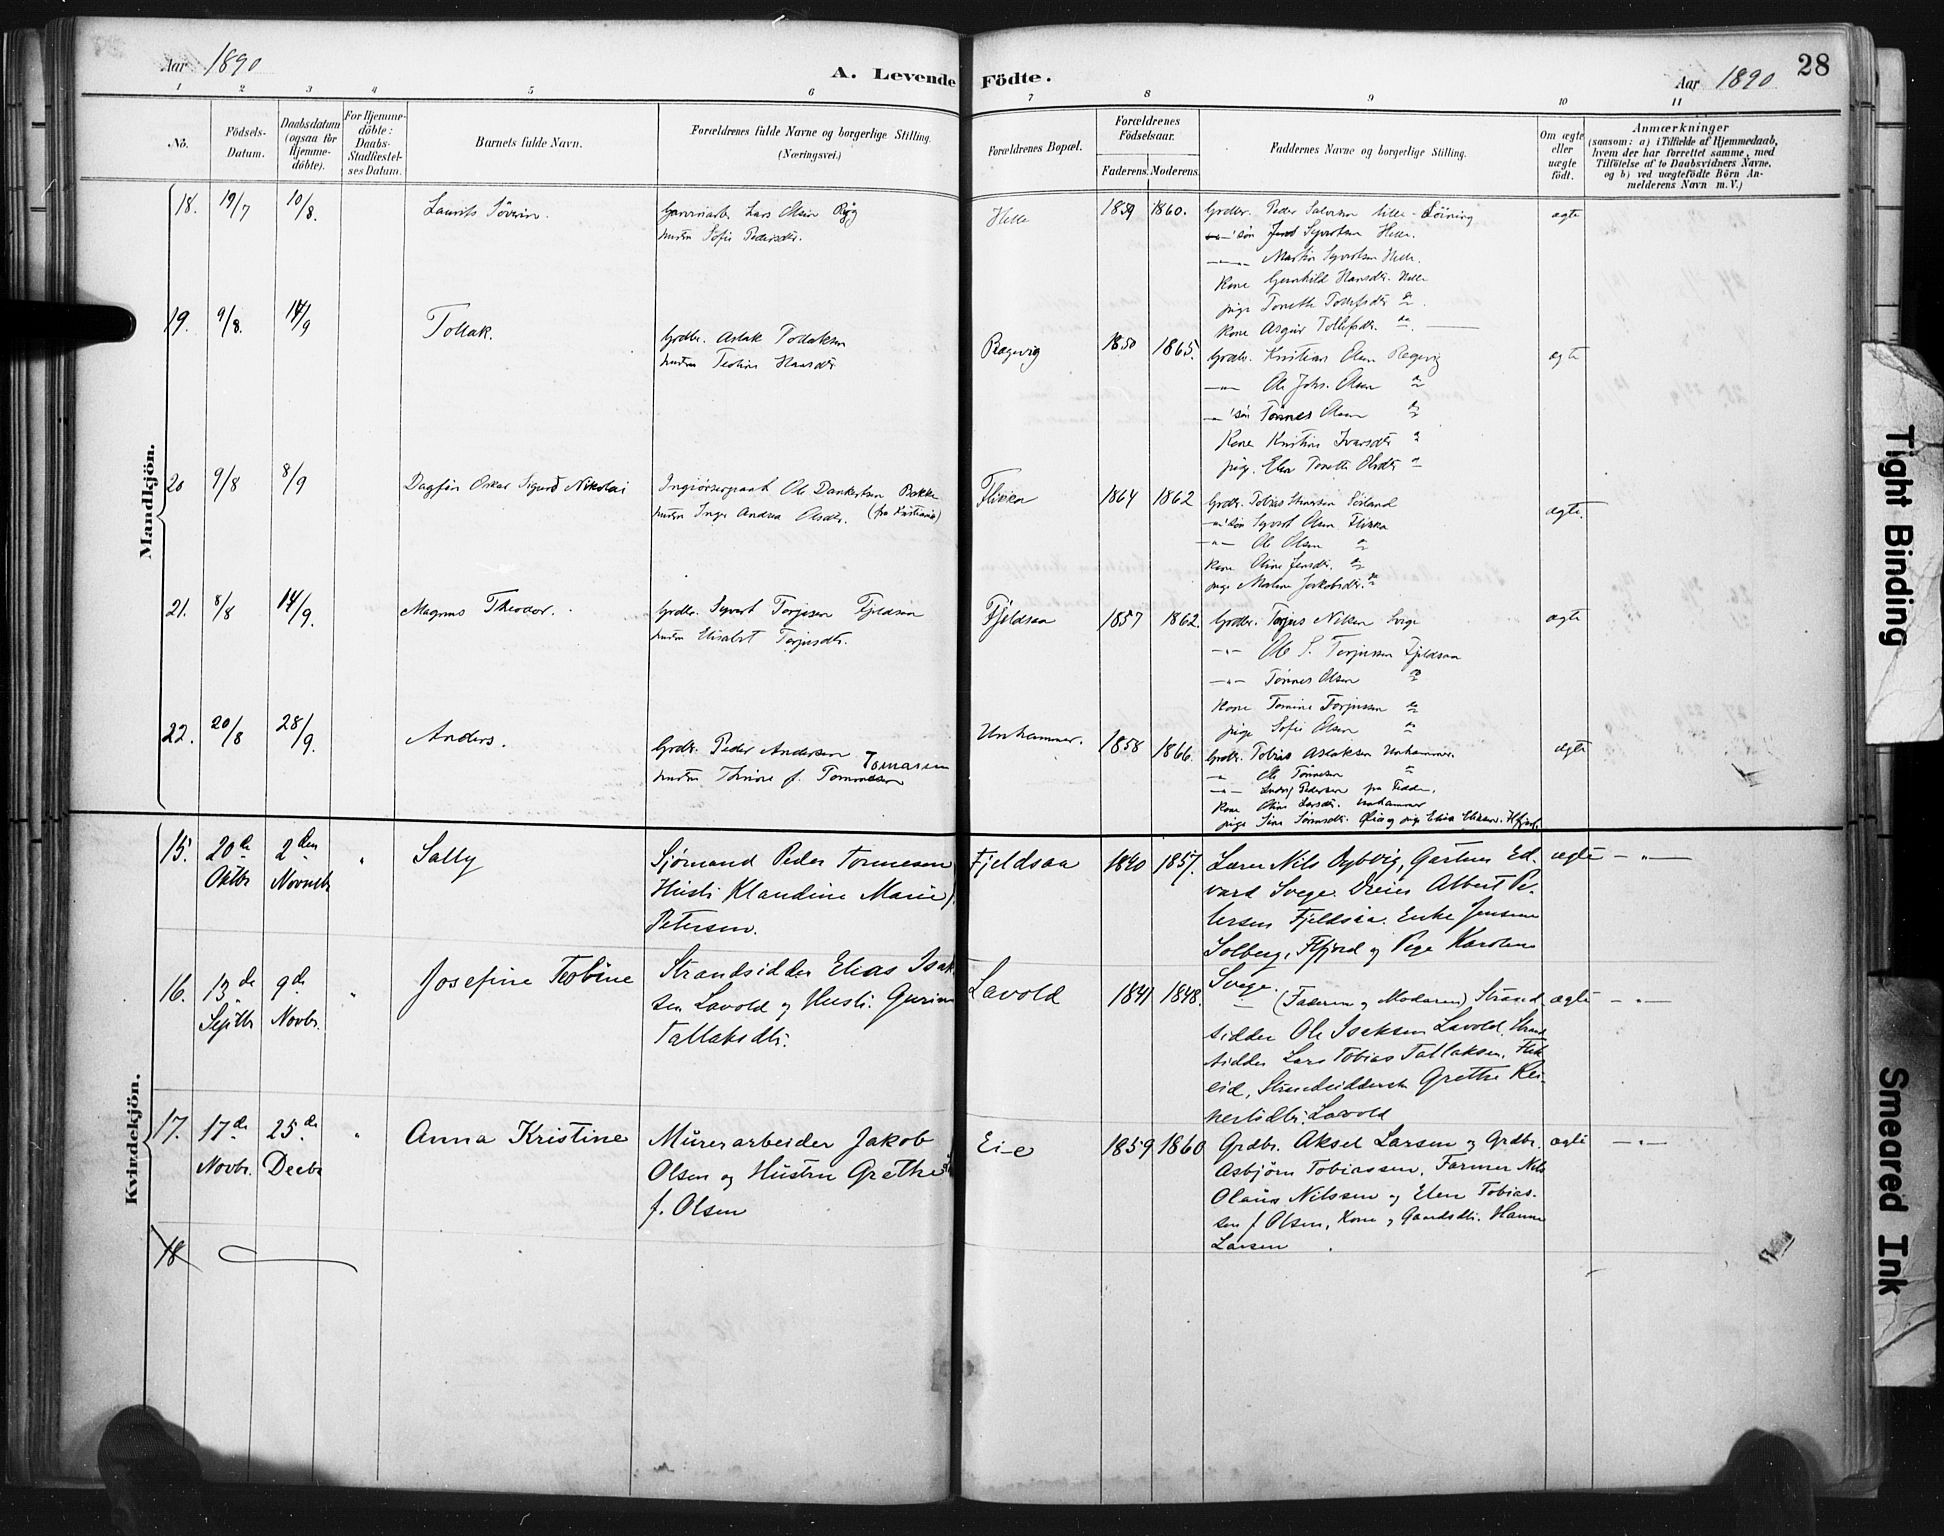 Aar 1890
A. Levende Födte.
Aar 1890
28
1 2 3 4 5 6 7 8 9 10 11
No.
Födsels-Datum.
Daabsdatum (ogsaa for Hjemme-döbte).
For Hjemme-döbte: Daabs-Stadfæstel-ses Datum.
Barnets fulde Navn.
Forældrenes fulde Navne og borgerlige Stilling.
(Næringsvei.)
Forældrenes Bopæl.
Forældrenes Födselsaar.
Faderens. Moderens.
Faddernes Navne og borgerlige Stilling.
Om ægte eller uægte födt.
Anmærkninger
(saasom: a) i Tilfælde af Hjemmedaab,
hvem der har forrettet samme, med
Tilföielse af to Daabsvidners Navne,
og b) ved uægtefödte Börn An-
melderens Navn m. V.)
Mandkjön.
18. 19/7 10/8. Laurits Søverin.
Lars Olsen
hustru Sofie Pedersdtr.
Helle 1859 1860.
Grdbr. Peder Salvesen Lille-
Syvertsen Helle.
Martin Syvertsen Helle.
Kone Gunhild Hansdtr. Helle
pige Tonette
Kone Asgjer Tollefsdtr.
ægte
19. 9/8. 14/9 Tollak.
Grdbr. Aslak Tollaksen
hustru Hansdtr
Regevig 1850 1865.
Grdbr. Kristian Olsen Regevig
Ole Johs. Olsen
søn Tønnes Olsen
Kone Kristine Ivarsdtr
pige. Tonette Olsdtr
ægte
20 9/8 8/9 Dagfin Oskar Sigurd Nikolai
Ole Dankertsen Bakke
hustru Inger Andrea Olsdtr. (fra Kristiania)
Flikka 1864 1862
Grdbr. Tobias
søn Syvert Olsen Flikka
Ole Olsen
Kone Oline Jensdtr.
pige Malene Jakobsdtr.
ægte.
21. 8/8 14/9. Magnus Theodor.
Grdbr. Syvert Torjusen Fjeldsaa
hustru Elisabet Torjusdtr.
Fjeldsaa 1857 1862.
Grdbr. Torjus Nilsen Svege
Ole S. Torjussen Fjeldsaa
Tønnes Olsen
Kone Tomine Torjussen
pige Sofie Olsen
ægte
22. 20/8 28/9. Anders.
Grdbr. Peder Andersen
hustru Thrine f. Tønnesen
Unhammer. 1858 1866.
Grdbr. Tobias Aslaksen Unhammer
Ole Tønnesen
Ludvig Pedersen fra Fidde.
Kone Oline Larsdtr. Unhammer
pige Sine
ægte
Kvindekjön.
15. 20de Oktbr 2den Novmbr " Sally
Sjømand Peder Tønnesen
Hustr. Klandine Marie f.
Petersen.
Fjeldsaa 1840 1857.
Lærer Nils Dybvig, Gartner Ed-
vard Svege. Dreier Albert Pe-
tersen Fjeldsaa. Enke Jensine
Solberg, Flfjord og Pige Karoline
Svege.
ægte - " -
16. 13de Septbr 9de Novbr. " Josefine Tobine
Strandsidder Elias Isak-
sen Lavold og Hustr. Gurine
Tallaksdtr.
Lavold 1841 1848.
(Faderen og Moderen) Strand-
sidder Ole Isaksen Lavold. Strand-
sidder Lars Tobias Tallaksen, Flik-
eid, Grethe Rei-
nertsdtr. Lavold
ægte - " -
17. 17de Novbr. 25de Decbr " Anna Kristine
Murerarbeider Jakob
Olsen og Hustru Grethe
f. Olsen
Eie 1859 1860
Grdbr. Aksel Larsen og Grdbr.
Asbjørn Tobiassen, Farmer Nils
Olaus Nilssen og Elen Tobias-
sen f. Olsen, Kone og Gaardsdtr. Hanne
Larsen
ægte - " -
18
Tight Binding
Smeared Ink